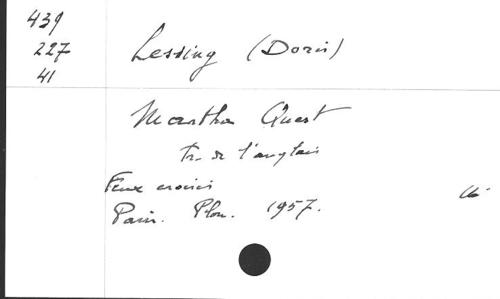 439
227
41
Lessing (Doris)
Martha Quest
Tr. de l'anglais
Feux croisés
Paris. Plon. 1957.